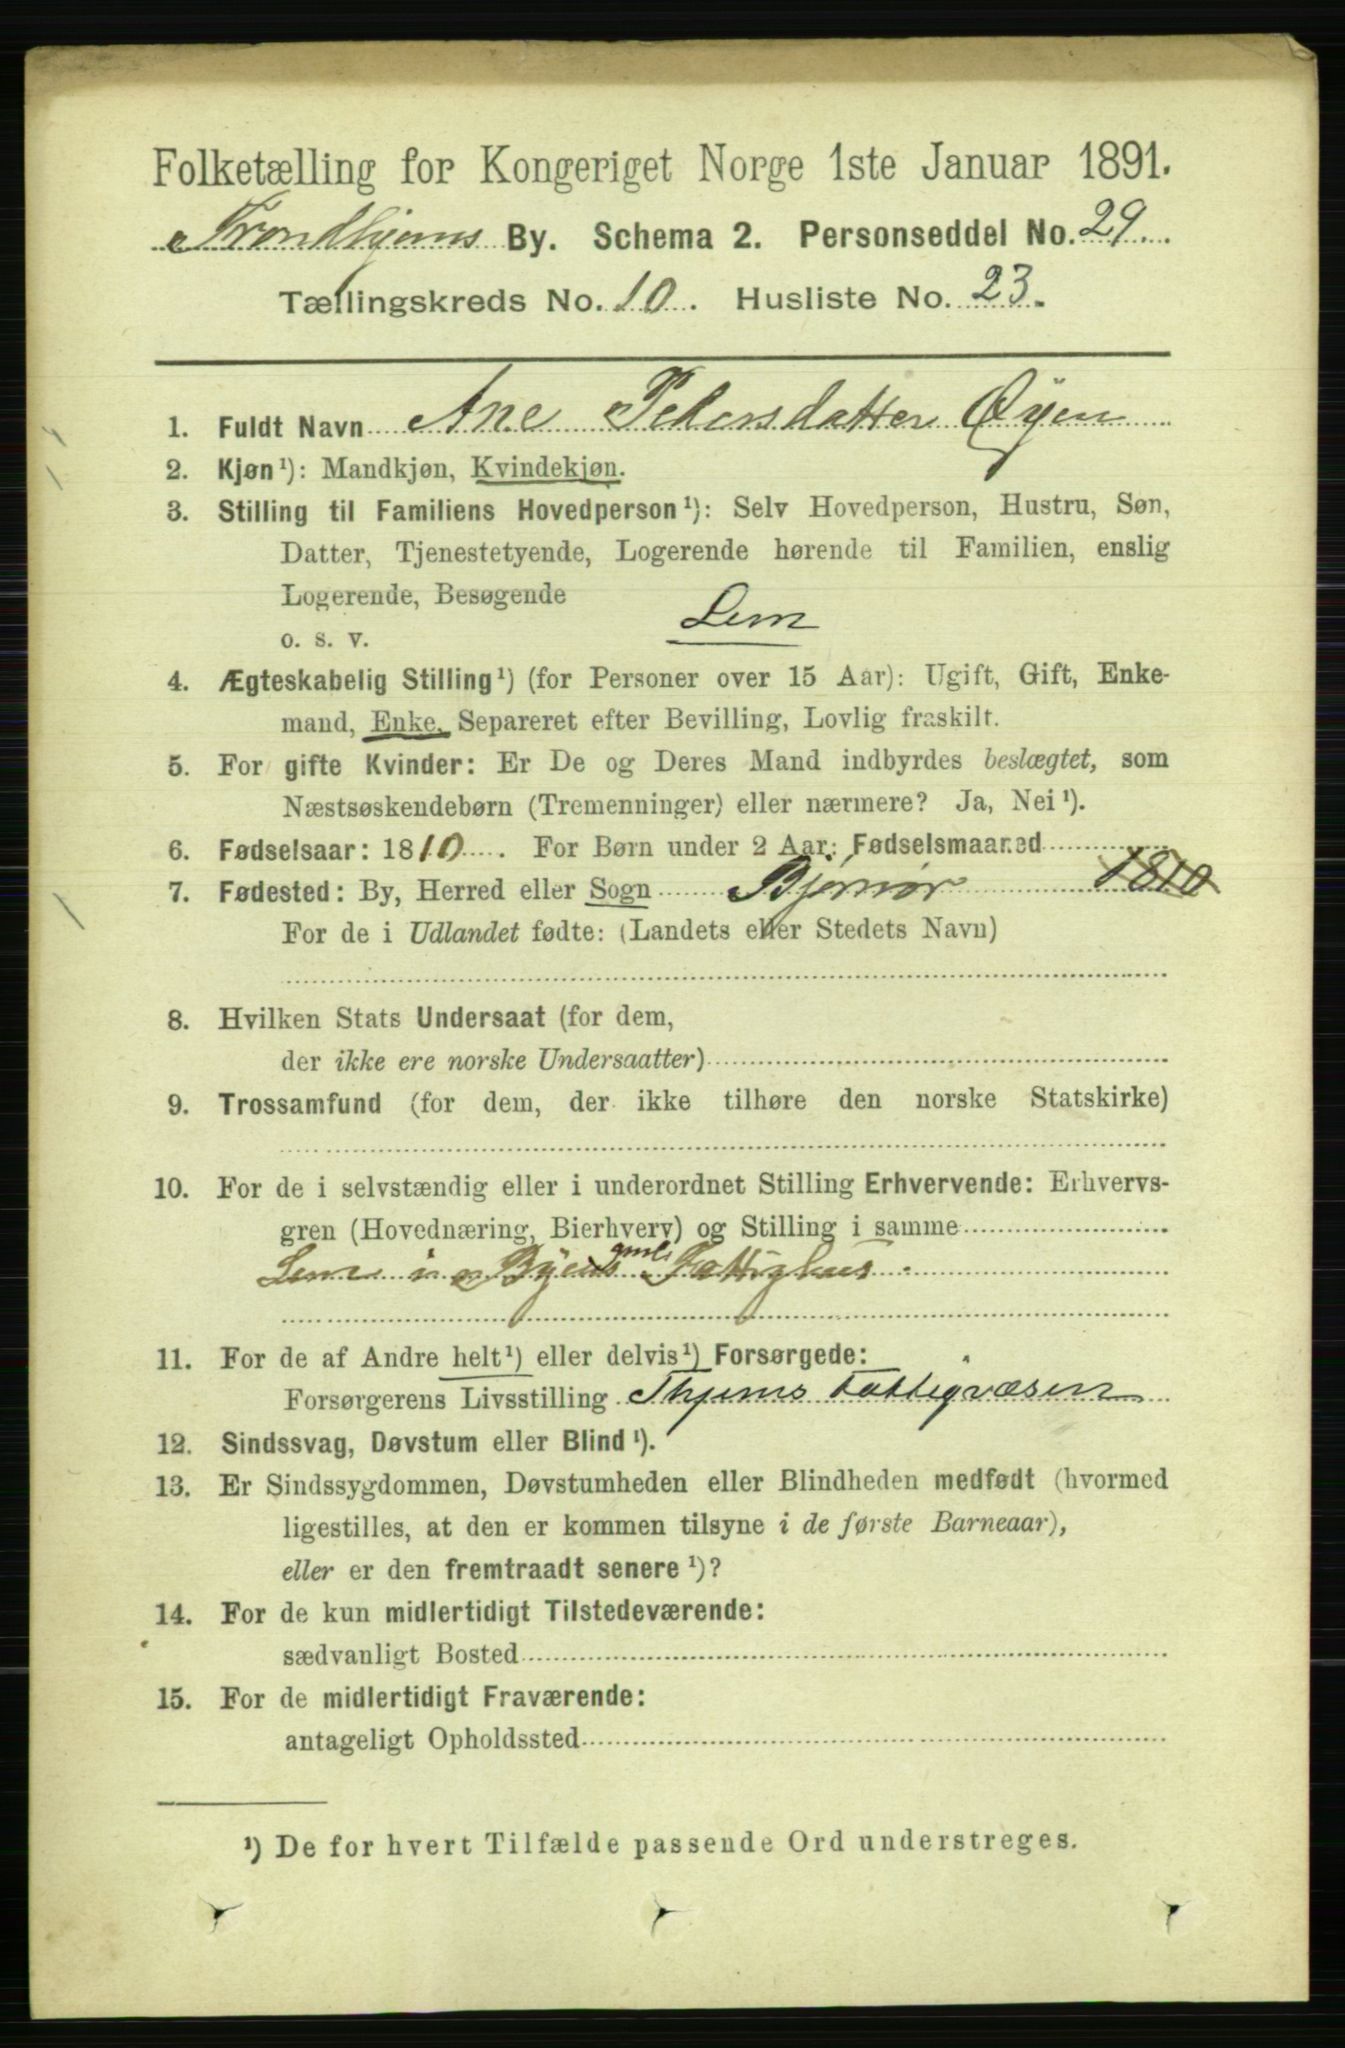 Folketælling for Kongeriget Norge 1ste Januar 1891.
Trondhjems By. Schema 2. Personseddel No. 29.
Tællingskreds No. 10. Husliste No. 23.
1. Fuldt Navn Ane Pedersdatter Øyen
2. Kjøn¹): Mandkjøn, Kvindekjøn.
3. Stilling til Familiens Hovedperson¹): Selv Hovedperson, Hustru, Søn,
Datter, Tjenestetyende, Logerende hørende til Familien, enslig
Logerende, Besøgende
o. s. v. Lem
4. Ægteskabelig Stilling¹) (for Personer over 15 Aar): Ugift, Gift, Enke-
mand, Enke, Separeret efter Bevilling, Lovlig fraskilt.
5. For gifte Kvinder: Er De og Deres Mand indbyrdes beslægtet, som
Næstsøskendebørn (Tremenninger) eller nærmere? Ja, Nei¹).
6. Fødselsaar: 1810. For Børn under 2 Aar: Fødselsmaaned
7. Fødested: By, Herred eller Sogn Bjørnør 1810
For de i Udlandet fødte: (Landets eller Stedets Navn)
8. Hvilken Stats Undersaat (for dem,
der ikke ere norske Undersaatter)
9. Trossamfund (for dem, der ikke tilhøre den norske Statskirke)
10. For de i selvstændig eller i underordnet Stilling Erhvervende: Erhvervs-
gren (Hovednæring, Bierhverv) og Stilling i samme
Lem i Byens gml. Fattighus.
11. For de af Andre helt¹) eller delvis¹) Forsørgede:
Forsørgerens Livsstilling Thjems Fattigvæsen
12. Sindssvag, Døvstum eller Blind¹).
13. Er Sindssygdommen, Døvstumheden eller Blindheden medfødt (hvormed
ligestilles, at den er kommen tilsyne i de første Barneaar),
eller er den fremtraadt senere¹)?
14. For de kun midlertidigt Tilstedeværende:
sædvanligt Bosted
15. For de midlertidigt Fraværende:
antageligt Opholdssted
¹) De for hvert Tilfælde passende Ord understreges.